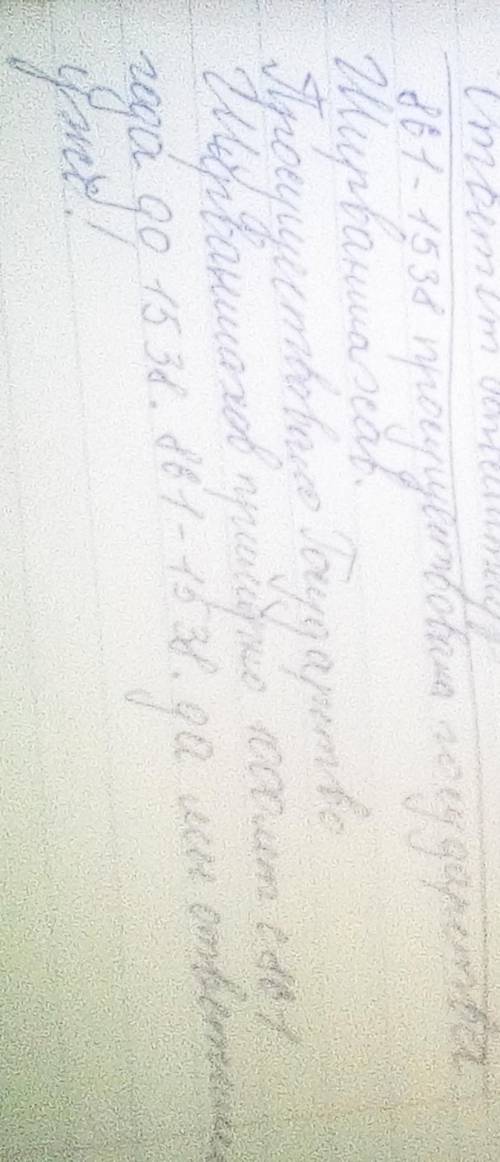 861-1538 просуществовала государства
Ширваншахов.
Просуществовало Государство
Ширваншахов примерно с 861
года до 1538. 861-1538. да мы ответили
уже!